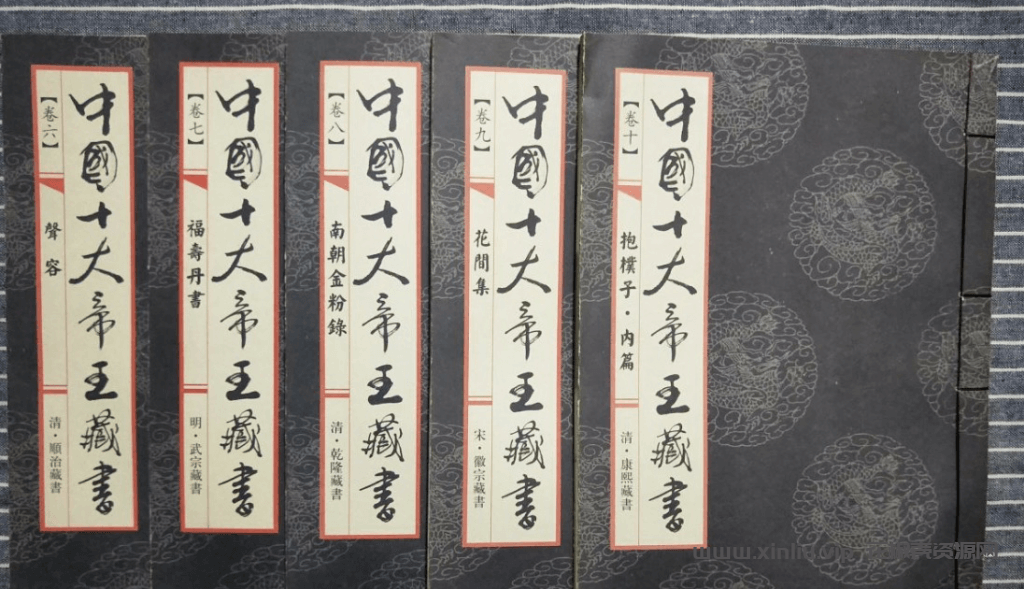 【卷六】
聲容
清·順治藏書
中國十大帝王藏書
【卷七】
福壽丹書
明·武宗藏書
中國十大帝王藏書
【卷八】
南朝金粉錄
清·乾隆藏書
中國十大帝王藏書
【卷九】
花間集
宋·徽宗藏書
中國十大帝王藏書
【卷十】
抱樸子·內篇
清·康熙藏書
中國十大帝王藏書